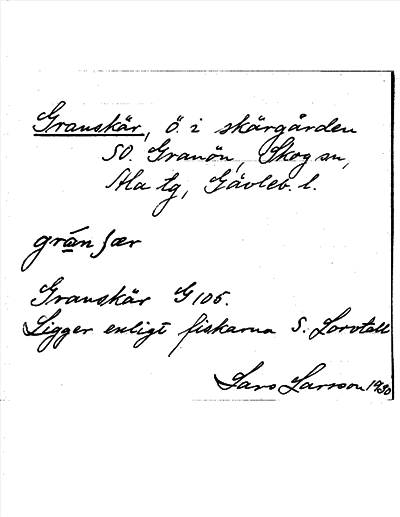 Granskär, Ö. i skärgården
SO. Granön, Skog sn,
Ala tg, Gävleb. l.
grán ʃær
Granskär G 106.
Ligger enligt fiskarna S. Lorvtall
Lars Larsson 1930